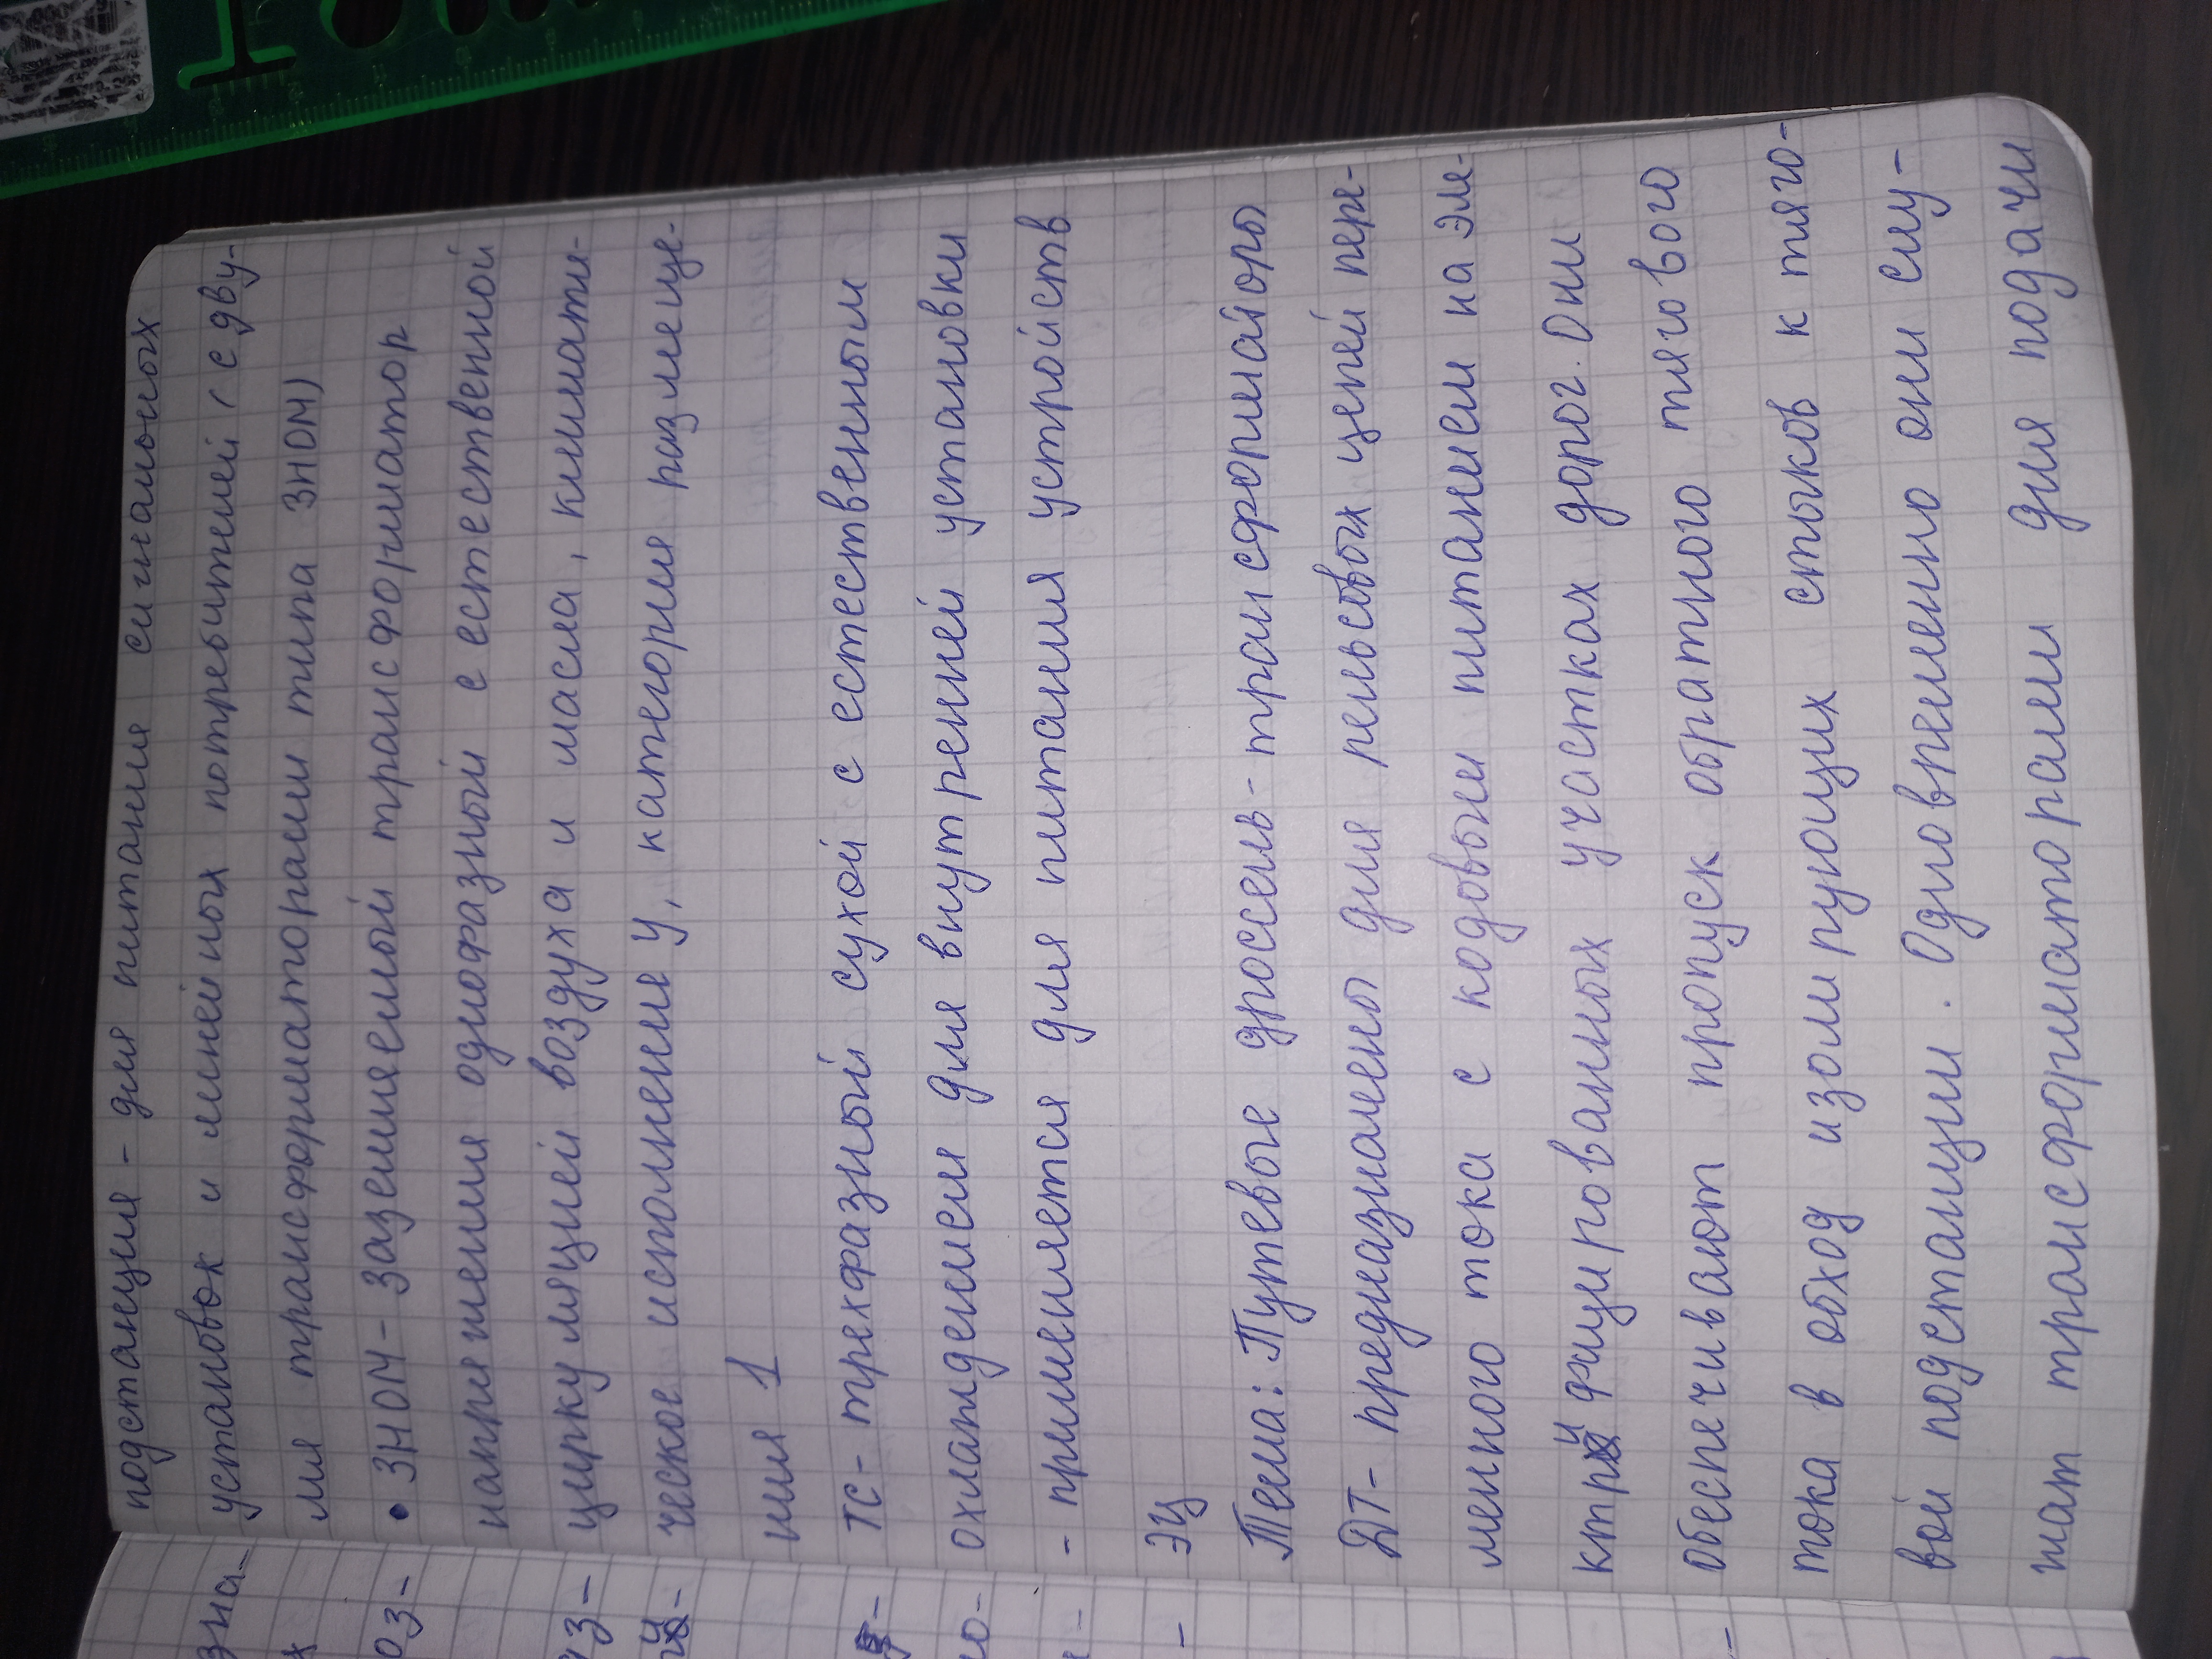 подстанция - для питания сигнальных
установок и линейных потребителей (с дву-
мя трансформаторами типа ЗНОМ)
• ЗНОМ - заземляемый трансформатор
напряжения однофазный с естественной
циркуляцией воздуха и масла, климати-
ческое исполнение У, категория размеще-
ния 1
ТС - трехфазный сухой с естественным
охлаждением для внутреней установки
- применяется для питания устройств
ЭЦ
Тема: Путевые дроссель-трансформаторы
ДТ - предназначены для рельсовых цепей пере-
менного тока с кодовым питанием на эле-
ктрифицированных участках дорог. Они
обеспечивают пропуск обратного тягового
тока в обход изолирующих стыков к тяго-
вой подстанции. Одновременно они слу-
жат трансформаторами для подачи
зна-
х
оз-
уз-
но-